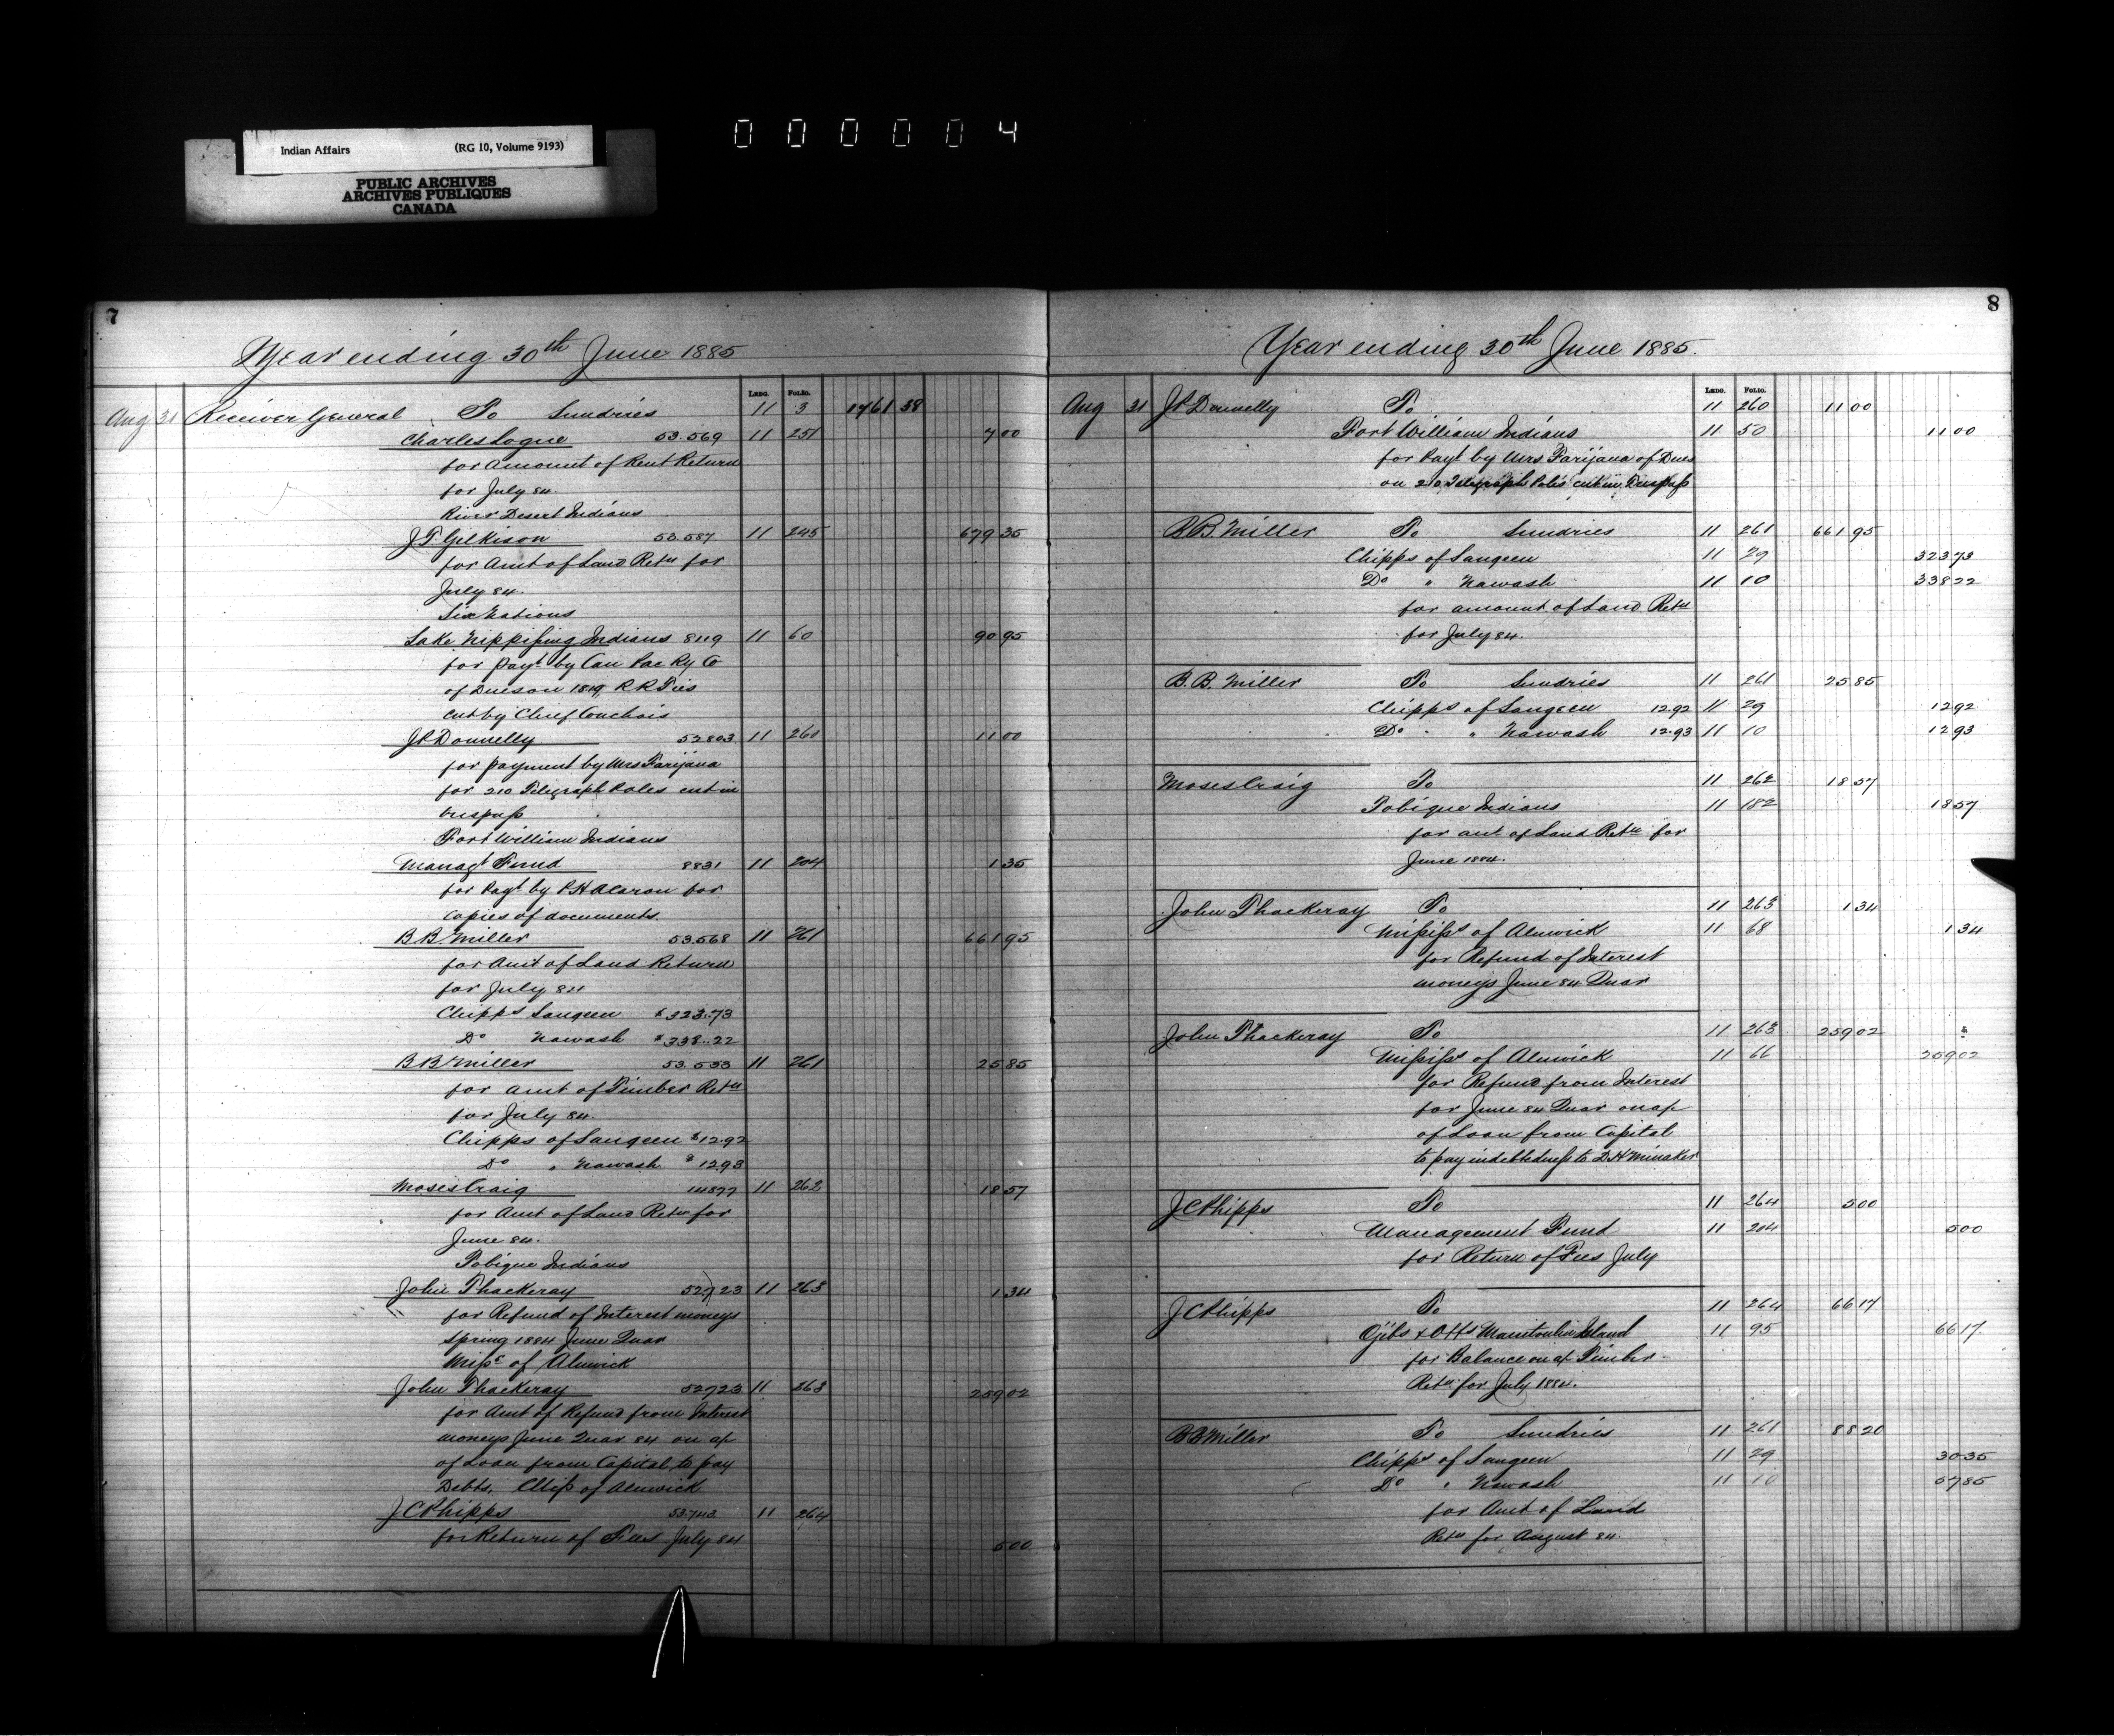 Indian Affairs (RG 10, Volume 9193)
PUBLIC ARCHIVES
ARCHIVES PUBLIQUES
CANADA
000004
7
Year ending 30th June 1885
LEDG. FOLIO.
Aug 31 Receiver General To Sundries 11 3 1761 38
Charles Logue 53.569 11 251 7 00
for Amount of Rent Return
for July 84.
River Desert Indians
J.T. Gilkison 53.587 11 245 679 35
for Amt of Land Retn for
July 84.
Six Nations
Lake Nippissing Indians 8119 11 60 90 95
for payt by Can Pac Ry Co
of Dues on 1819 R R Ties
cut by Chief
J P Donnelly 52803 11 260 11 00
for payment by Mrs Farijana
for 210 Telegraph Poles cut in
trespass
Fort William Indians
Managt Fund 8831 11 204 1 35
for Payt by for
copies of documents
B B Miller 53.568 11 261 661 95
for Amt of Land Return
for July 84
Chipps Saugeen $323.73
Do Nawash $338.22
B B Miller 53.533 11 261 25 85
for Amt of Timber Retn
for July 84.
Chipps of Saugeen $12.92
Do " Nawash $12.93
Moses Craig 14877 11 262 18 57
for Amt of Land Retn for
June 84.
Tobique Indians
John Thackeray 52723 11 263 1 34
for Refund of Interest moneys
Spring 1884 June Quar
Miss of Alnwick
John Thackeray 52723 11 263 259 02
for Amt of Refund from Interest
moneys June Quar 84 on a/c
of Loan from Capital to pay
Debts. Miss of Alnwick
J C Phipps 53743 11 264
for Return of Fees July 84 5 00
8
Year ending 30th June 1885.
LEDG. FOLIO.
Aug 31 J P Donnelly To 11 260 11 00
Fort William Indians 11 50 11 00
for Payt by Mrs Farijana of Dues
on 210 Telegraph Poles cut in Trespass
B B. Miller To Sundries 11 261 661 95
Chipps of Saugeen 11 29 323 73
Do " Nawash 11 10 338 22
for amount of Land Retn
for July 84.
B. B. Miller To Sundries 11 261 25 85
Chipps of Saugeen 12.92 11 29 12 92
Do " Nawash 12.93 11 10 12 93
Moses Craig To 11 262 18 57
Tobique Indians 11 182 18 57
for amt of Land Retn for
June 1884.
John Thackeray To 11 263 1 34
Mississ of Alnwick 11 68 1 34
for Refund of Interest
moneys June 84 Quar
John Thackeray To 11 263 259 02
Mississ of Alnwick 11 66 259 02
for Refund from Interest
for June 84 Quar on a/c
of Loan from Capital
to pay indebtedness to D H Minaker
J C Phipps To 11 264 5 00
Management Fund 11 204 5 00
for Return of Fees July
J C Phipps To 11 264 66 17
Ojibs & Otts Manitoulin Island 11 95 66 17
for Balance on a/c Timber
Retn for July 1884.
B B Miller To Sundries 11 261 88 20
Chipps of Saugeen 11 29 30 35
Do " Nawash 11 10 57 85
for Amt of Land
Retn for August 84.